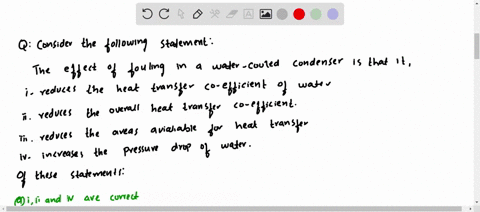 Q: Consider the following statement:
The effect of fouling in a water-cooled condenser is that it,
i. reduces the heat transfer co-efficient of water
ii. reduces the overall heat transfer co-efficient.
iii. reduces the areas aviahable for heat transfer
iv. increases the pressure drop of water.
Of these statements:
(a) i, ii and iv are correct